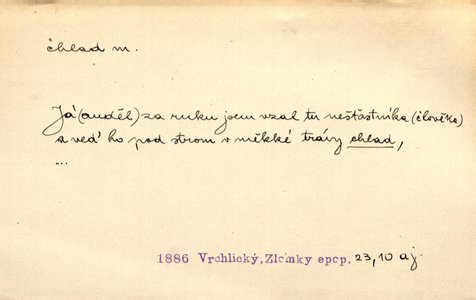 chlad m.
Já (anděl) za ruku jsem vzal tu nešťastníka (člověka)
a veď ho pod strom v měkké trávy chlad,
...
1886 Vrchlický, Zlomky epop. 23, 10 aj.